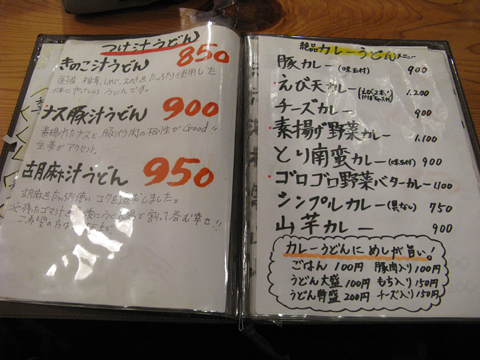 つけ汁うどん
きのこ汁うどん 850
うどんです。
ナス豚汁うどん 900
素揚げたナスと、豚バラ肉の相性がGood!!
生姜がアクセント。
胡麻汁うどん 950
絶品カレーうどんメニュー
豚カレー(味玉付) 900
えび天カレー 1.200
チーズカレー 900
素揚げ野菜カレー 1.100
とり南蛮カレー(味玉付) 900
ゴロゴロ野菜バターカレー 1,100
シンプルカレー(具なし) 750
山芋カレー 900
カレーうどんにめしが旨い!
ごはん 100円 豚肉入り 100円
うどん大盛 100円 もち入り 150円
うどん特盛 200円 チーズ入り 150円